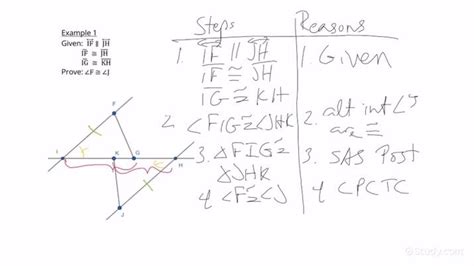 Example 1
Given: IF ∥ JH
IF ≅ JH
IG ≅ KH
Prove: ∠F ≅ ∠J
Steps
Reasons
1. IF || JH
IF ≅ JH
IG ≅ KH
1. Given
2. <FIG ≅ <JHK
2. alt int <'s are ≅
3. △FIG ≅ △JHK
3. SAS Post
4 <F ≅ <J
4 CPCTC
F
I
K
G
H
J
Study.com